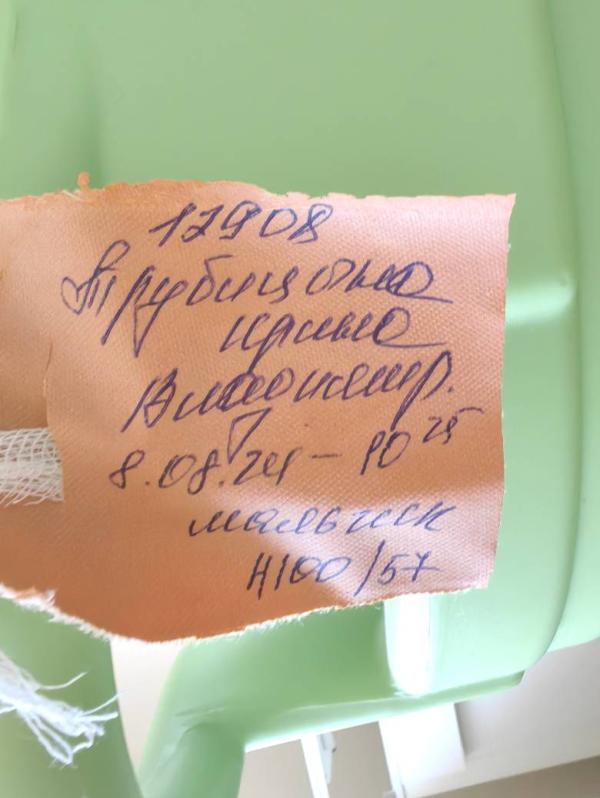 17908
Трубицына
Ирина
Владимир.
8.08.24 – 10 25
мальчик
4100/57